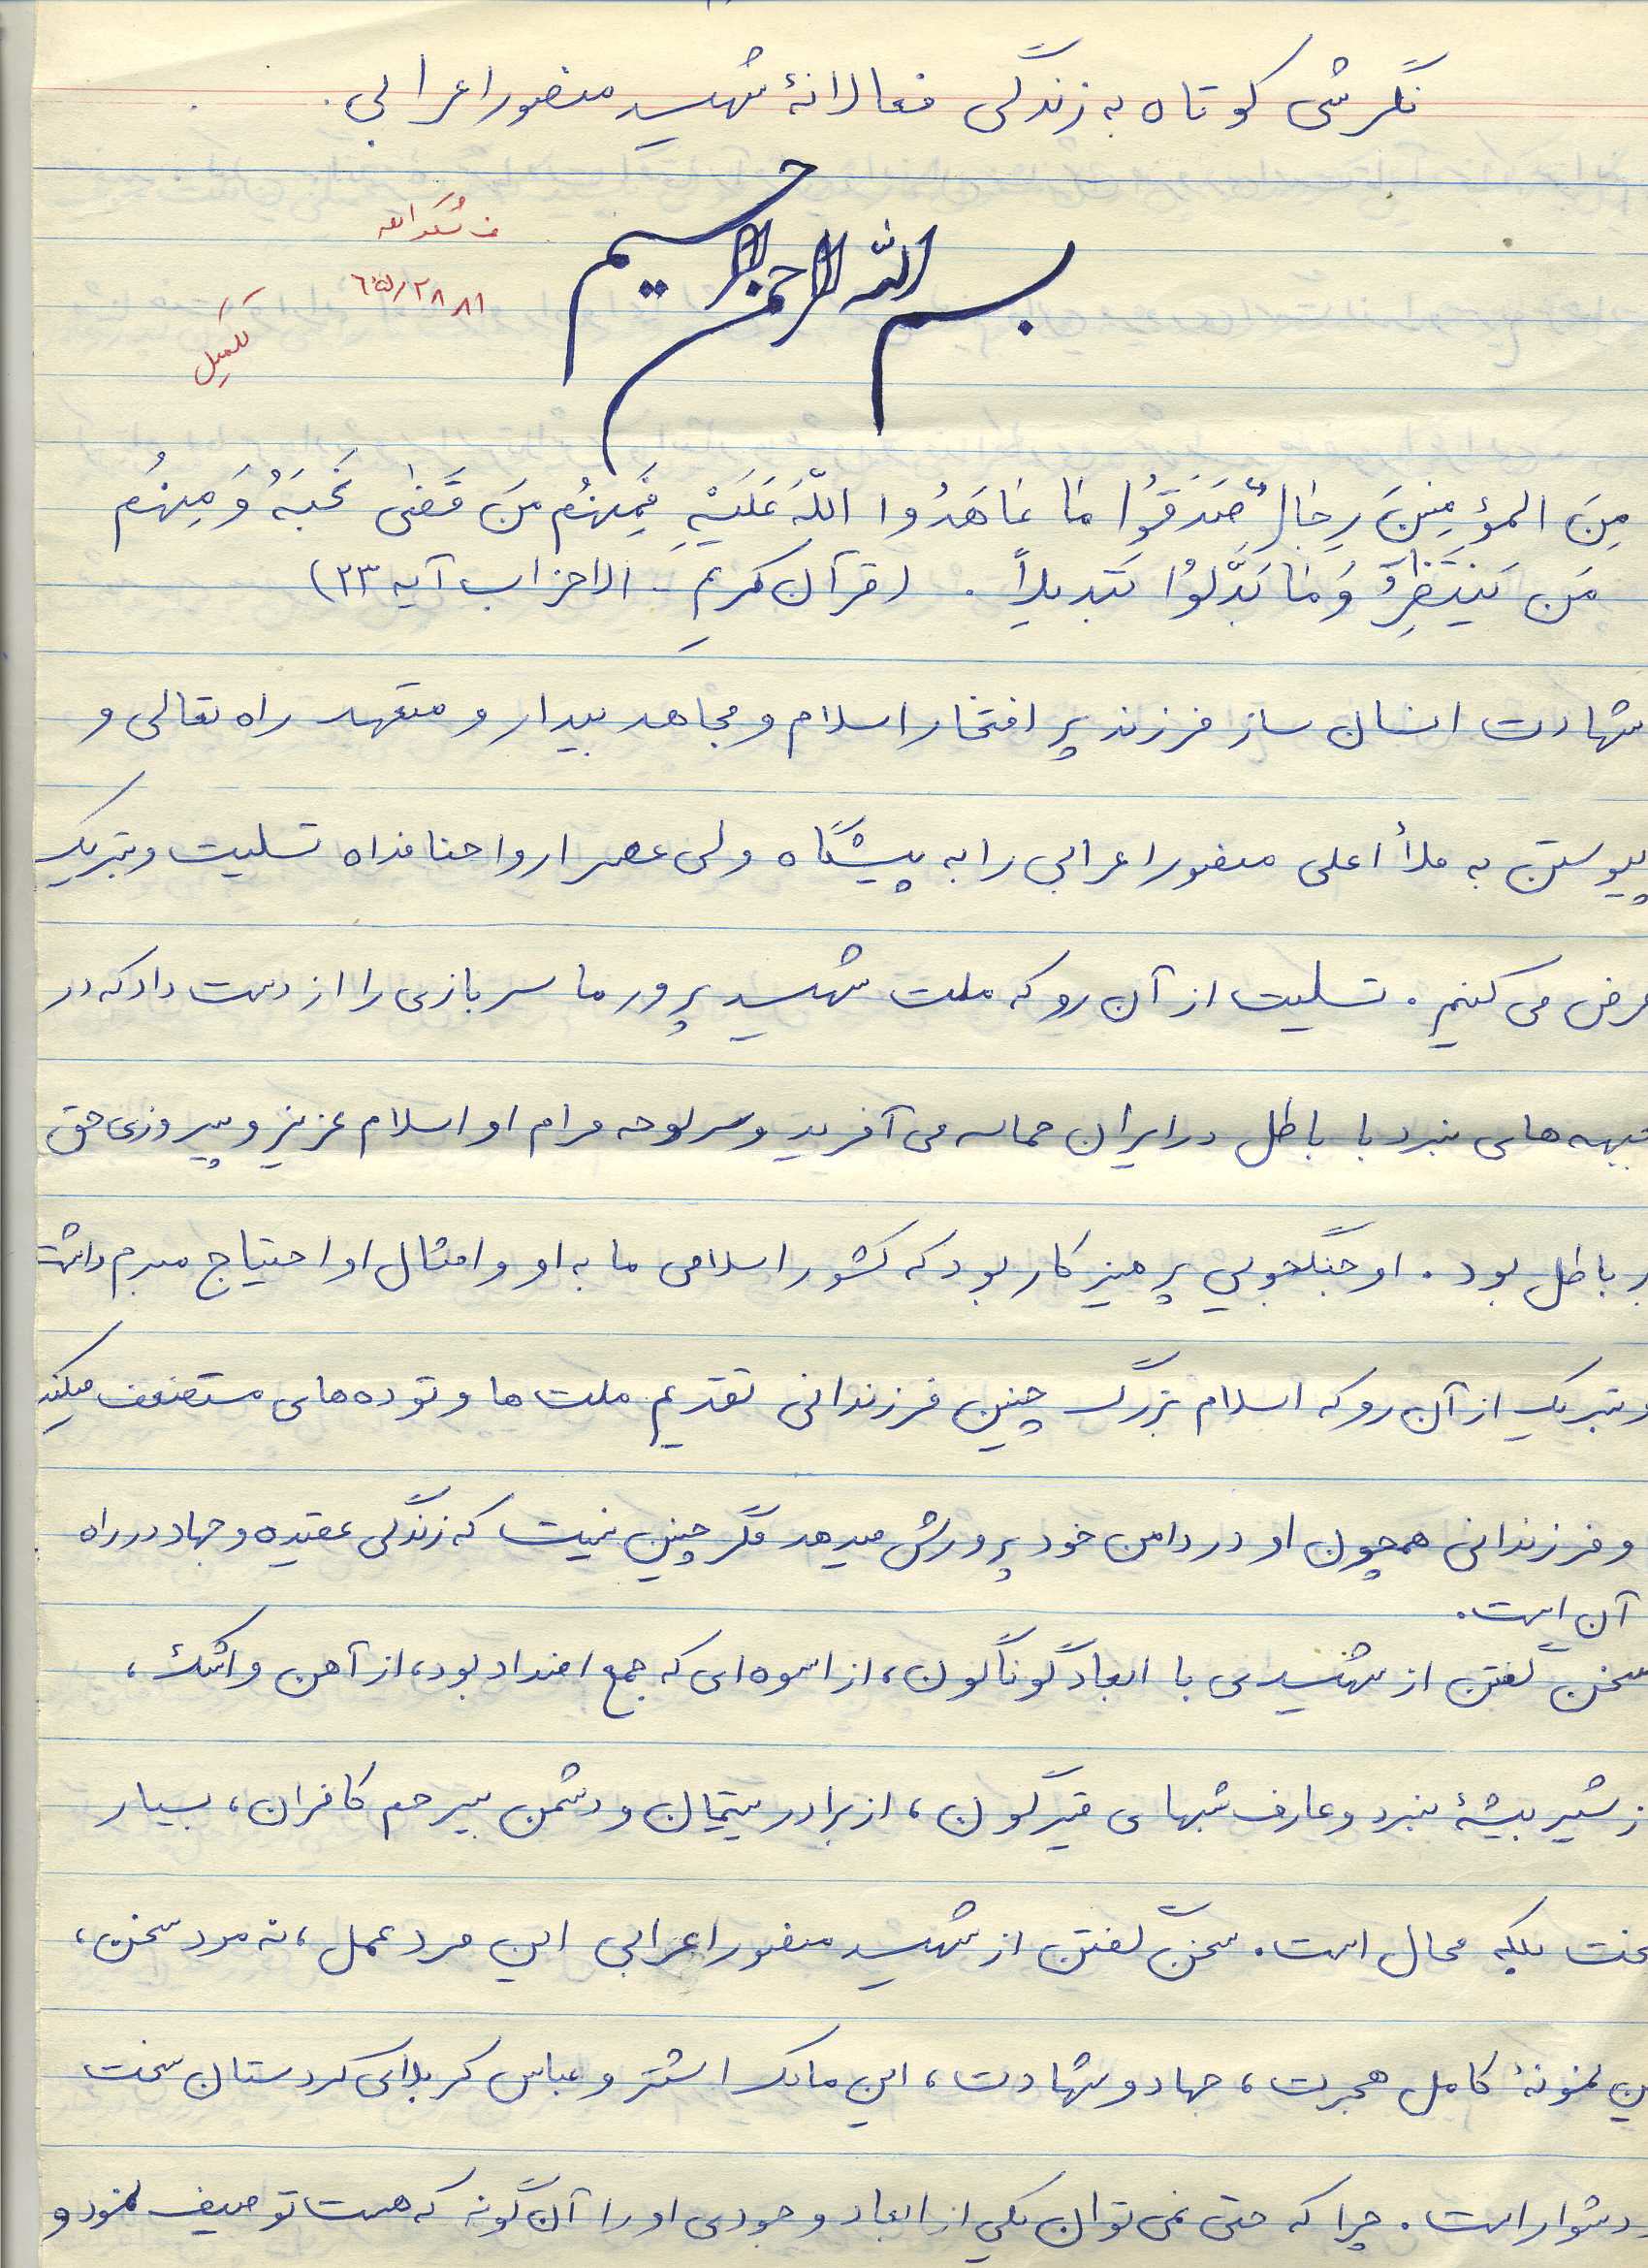 نگرشی کوتاه به زندگی فعالانهٔ شهید منصور اعرابی.
بسم الله الرحمن الرحیم
تکمیل
مِنَ المؤمِنینَ رِجٰالٌ صَدَقوُا مٰا عٰاهَدُوا اللّهَ عَلَیْهِ فَمِنهُم مَن قَضیٰ نَحبَهُ وَ مِنهُم
مَن یَنتَظِرُ وَ مٰا بَدَّلوُا تَبدیلاً . (قرآن کریم - الاحزاب آیه ۲۳)
شهادت انسان ساز فرزند پر افتخار اسلام و مجاهد بیدار و متعهد راه تعالی و
پیوستن به ملأ اعلی منصور اعرابی را به پیشگاه ولی عصر ارواحنا فداه تسلیت و تبریک
عرض می کنیم . تسلیت از آن رو که ملت شهید پرور ما سربازی را از دست داد که در
جبهه های نبرد با باطل در ایران حماسه می آفرید و سرلوحه مرام او اسلام عزیز و پیروزی حق
بر باطل بود . او جنگجویی پرهیز کار بود که کشور اسلامی ما به او و امثال او احتیاج مبرم داشت
و تبریک از آن رو که اسلام بزرگ چنین فرزندانی تقدیم ملت ها و توده های مستضعف میکند
و فرزندانی همچون او در دامن خود پرورش میدهد مگر چنین نیست که زندگی عقیده و جهاد در راه
آن است.
سخن گفتن از شهیدی با ابعاد گوناگون، از اسوه ای که جمع اضداد بود، از آهن و اشک،
ز شیر بیشهٔ نبرد و عارف شبهای قیرگون، از برادر یتیمان و دشمن بیرحم کافران، بسیار
سخت بلکه محال است. سخن گفتن از شهید منصور اعرابی این مرد عمل، نه مرد سخن،
ین نمونهٔ کامل هجرت، جهاد و شهادت، این مالک اشتر و عباس کربلای کردستان سخت
دشوار است. چرا که حتی نمی توان یکی از ابعاد وجودی او را آن گونه که هست توصیف نمود و